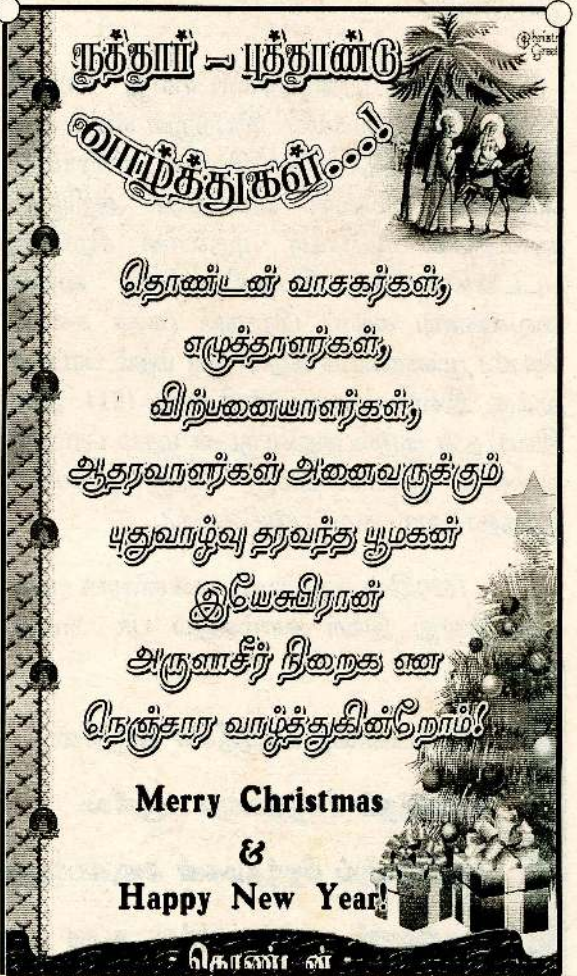 நத்தார் – புத்தாண்டு
வாழ்த்துகள்...!
தொண்டன் வாசகர்கள்,
எழுத்தாளர்கள்,
விற்பனையாளர்கள்,
ஆதரவாளர்கள் அனைவருக்கும்
புதுவாழ்வு தரவந்த பூமகன்
இயேசுபிரான்
அருளாசீர் நிறைக என
நெஞ்சார வாழ்த்துகின்றோம்!
Merry Christmas
&
Happy New Year!
- தொண்டன் -